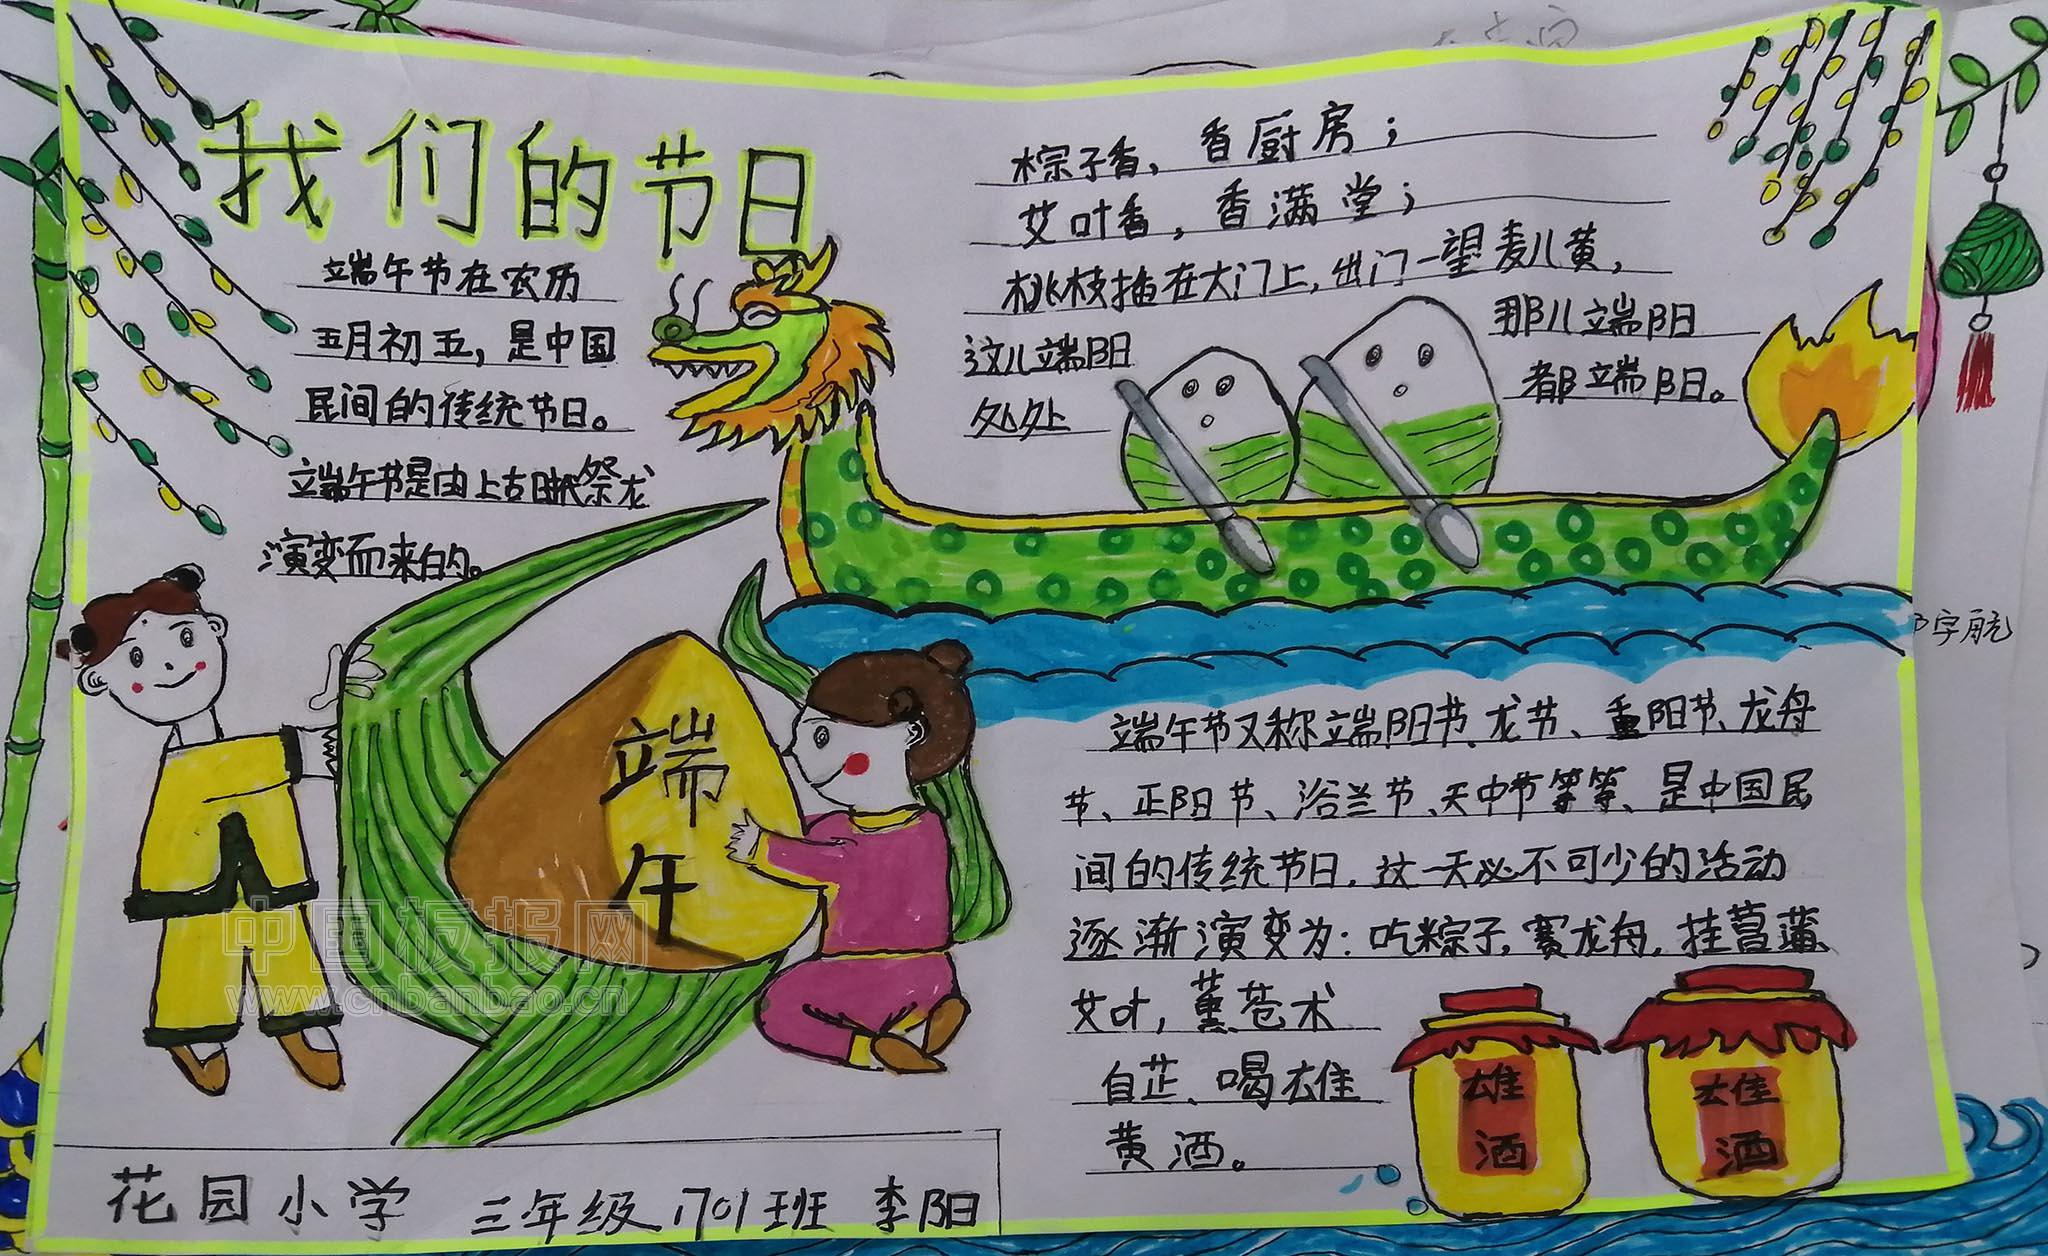 我们的节日
端午节在农历
五月初五，是中国
民间的传统节日。
端午节是由上古时代祭龙
演变而来的。
粽子香，香厨房；
艾叶香，香满堂；
桃枝插在大门上，出门一望麦儿黄，
这儿端阳
处处
那儿端阳
都端阳。
端午
端午节又称端阳节、龙节、重阳节、龙舟
节、正阳节、浴兰节、天中节等等、是中国民
间的传统节日，这一天必不可少的活动
逐渐演变为：吃粽子，赛龙舟，挂菖蒲、
艾叶，薰苍术
白芷、喝雄
黄酒。
雄
酒
雄
酒
花园小学 三年级1701班 李阳
字航
中国板报网
www.cnbanbao.cn